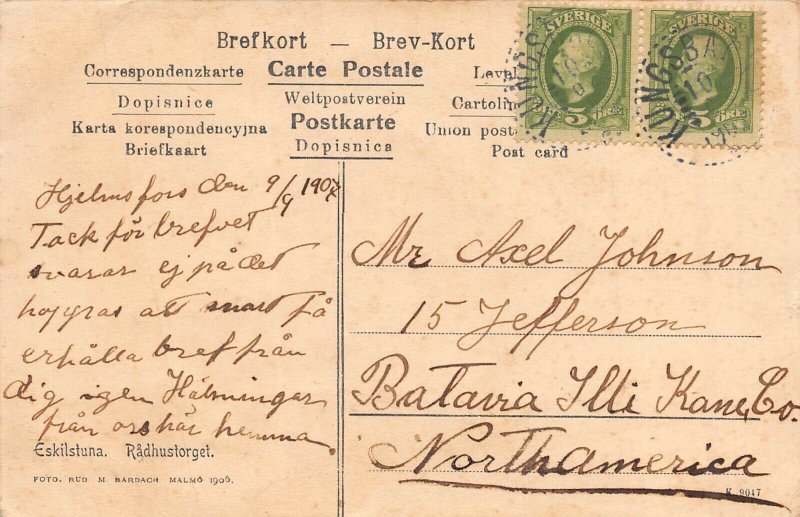 Brefkort — Brev-Kort
Correspondenzkarte Carte Postale Level
Dopisnice Weltpostverein Cartolin
Karta korespondencyjna Postkarte Union post
Briefkaart Dopisnica Post card
SVERIGE SVERIGE
5 ÖRE 5 ÖRE
KUNGSBA
Hjelmsfors den 9/9 1907
Tack för brefvet
svarar ej på det
hoppas att snart få
erhålla bref från
dig igen Hälsningar
från oss här hemma
Mr Axel Johnson
15 Jefferson
Batavia Illi Kane, Co.
Northamerica
Eskilstuna. Rådhustorget.
FOTO. RUD M. BARDACH MALMÖ 1906.
9047